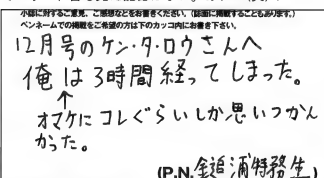 小誌に対するご意見、ご感想などをお書きください。(誌面に掲載することもあります。)
ペンネームでの掲載をご希望の方は下のカッコ内にお書き下さい。
12月号のケン・タ・ロウさんへ
俺は3時間経ってしまった。
↑
オマケにコレぐらいしか思いつかん
かった。
(P.N.鎚浦特務生)